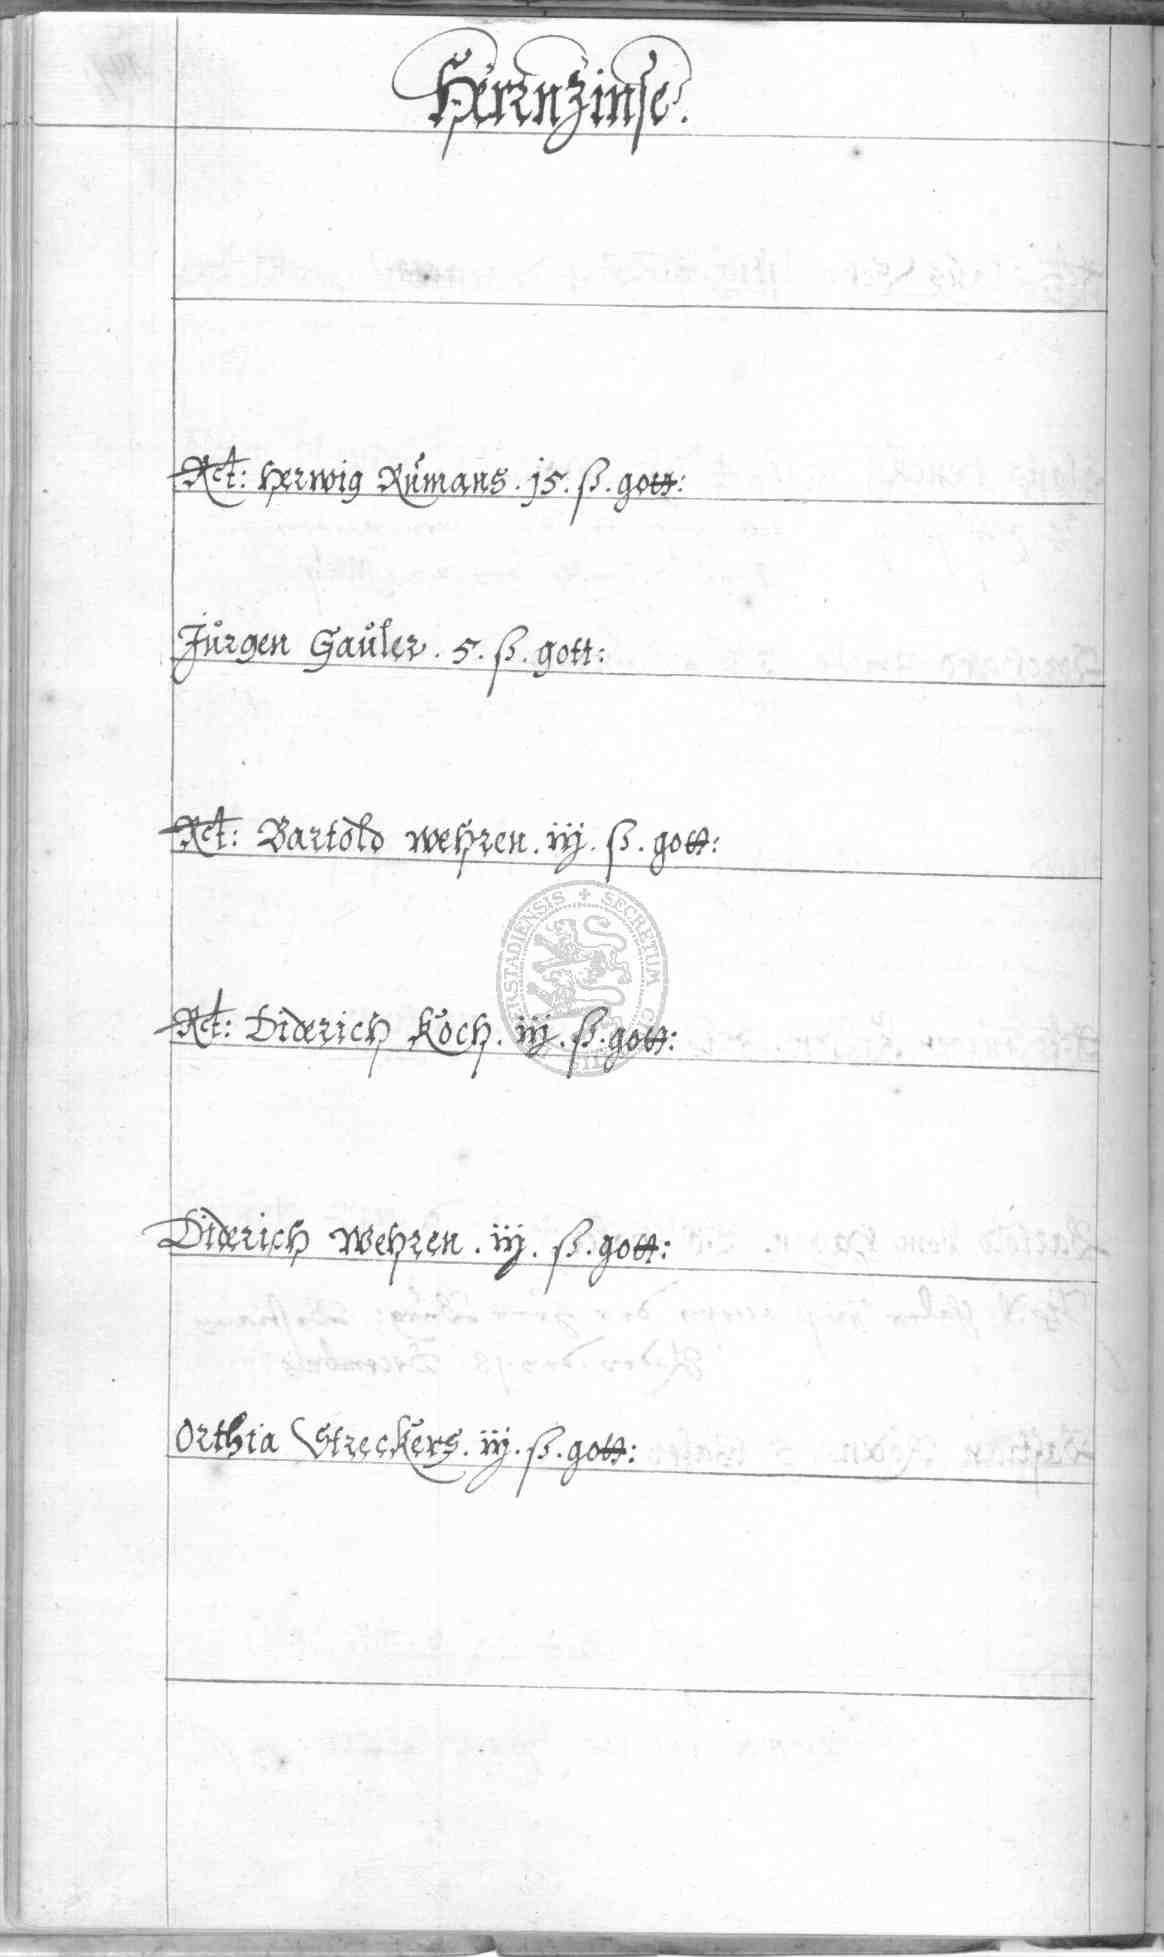 Herrnzinse.
Rct: Herwig Rümans. j5. ß. gott:
Jürgen Gauler. 5. ß. gott:
Rct: Bartold Wehren. iij. ß. gott:
ERSTADIENSIS + SECRETUM C
Rct: Diderich Koch. iij. ß. gott:
Diderich Wehren. iij. ß. gott:
Orthia Streckers. iij. ß. gott: